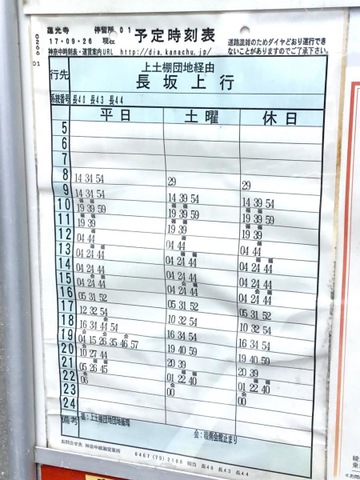 蓮光寺 停留所 01
17-09-26 現在
予定時刻表
神奈中時刻表・運賃案内URL http://dia.kanachu.jp/
道路混雑のためダイヤどおり運行できないことがありますのでご了承下さい
0266 01
行先 上土棚団地経由
長坂上行
系統番号 長40 長43 長44
平日 土曜 休日
5
6
7
8 14 34 54 29 29
9 14 34 54 19 39 54 19 39 54
10 19 39 59 19 39 59 19 39 59
11 19 39 59 19 39 59 19 39 59
12 04 44 04 44 04 44
13 04 44 04 24 44 04 24 44
14 04 24 44 04 24 44 04 24 44
15 04 24 44 04 24 44 04 24 44
16 05 31 52 05 31 52 05 31 52
17 12 32 54 10 32 54 10 32 54
18 16 34 44 54 16 34 54 16 34 54
19 04 15 26 35 46 57 19 40 59 20 39
20 10 27 44 20 39 20 39
21 05 26 45 01 22 40 01 22 40
22 06 00 00
23
24
備考 上土棚団地団地循環 会:綾南会館止まり
お問合せ先 神奈中綾瀬営業所 0467(79)2188 担当 長40 長43 長44